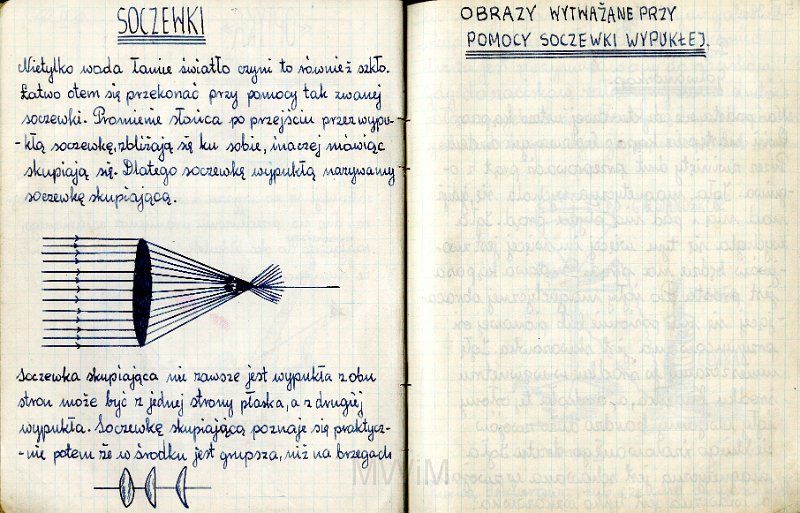 SOCZEWKI
Nietylko woda łamie światło czyni to również szkło.
Łatwo otem się przekonać przy pomocy tak zwanej
soczewki. Promienie słońca po przejściu przez wypu-
-kłą soczewkę, zbliżają się ku sobie, inaczej mówiąc
skupiają się. Dlatego soczewkę wypukłą nazywamy
soczewką skupiającą.
Soczewka skupiająca nie zawsze jest wypukła z obu
stron może być z jednej strony płaska, a z drugiej
wypukła. Soczewkę skupiającą poznaje się praktycz-
-nie potem że w środku jest grupsza, niż na brzegach
MWiM
OBRAZY WYTWAŻANE PRZY
POMOCY SOCZEWKI WYPUKŁEJ.